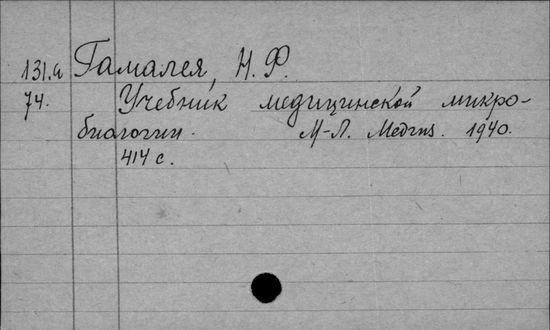 131.а Гамалея, Н. Ф.
74. Учебник медицинской микро-
биологии. М-Л. Медгиз. 1940.
414 с.